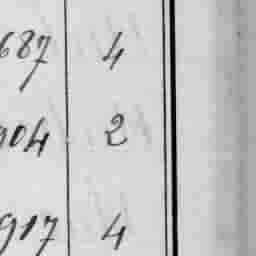 687 4
904 2
917 4